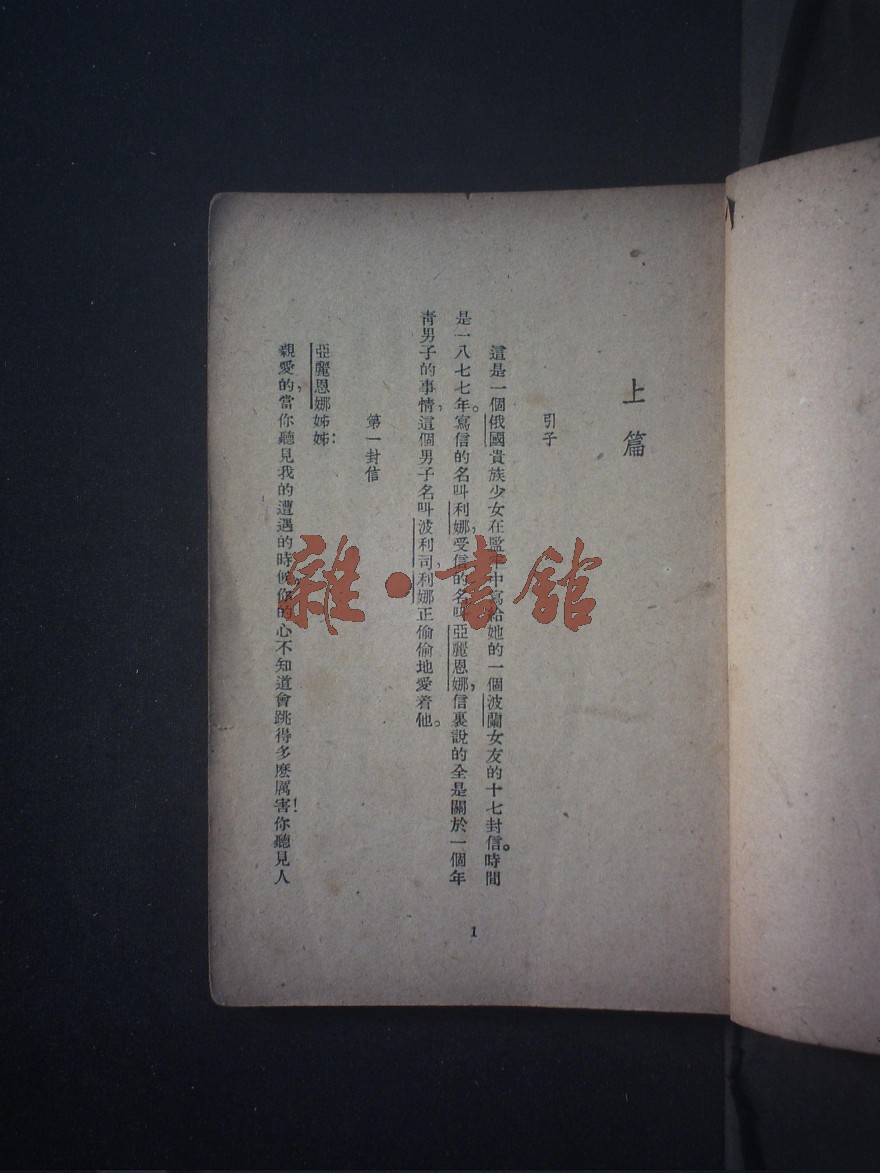 上篇
引子
這是一個俄國貴族少女在監牢中寫給她的一個波蘭女友的十七封信。時間
是一八七七年。寫信的名叫利娜,受信的名叫亞麗恩娜,信裏說的全是關於一個年
靑男子的事情,這個男子名叫波利司,利娜正偷偷地愛着他。
第一封信
亞麗恩娜姊姊:
親愛的,當你聽見我的遭遇的時候,你的心不知道會跳得多麽厲害!你聽見人
1
雜·書館